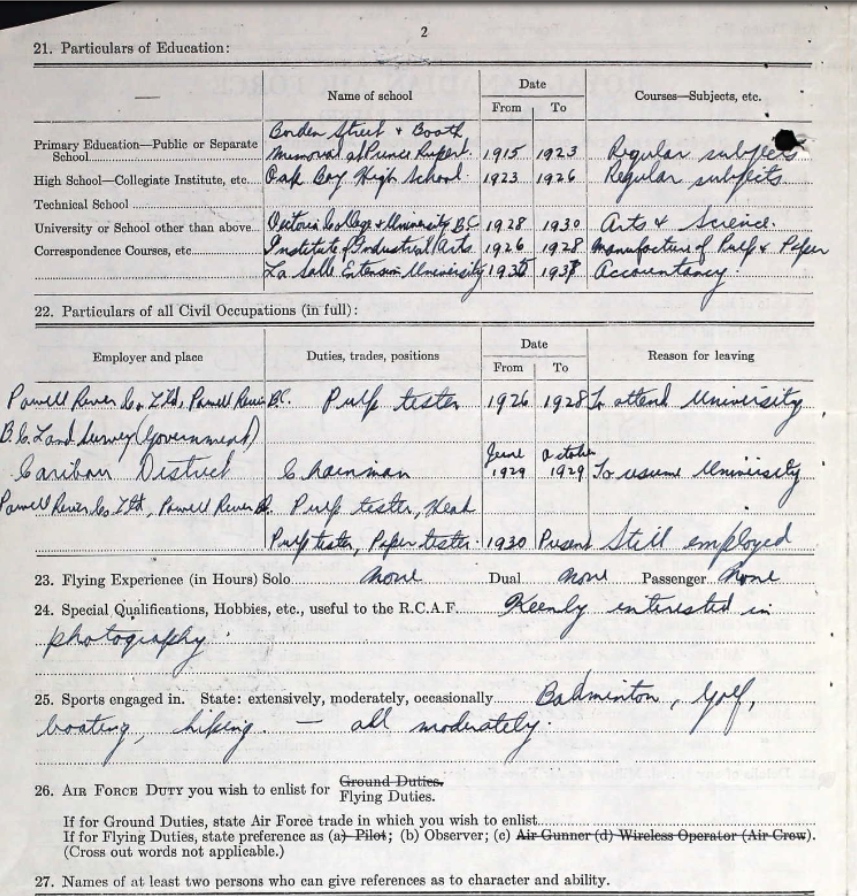 2
21. Particulars of Education:
— Name of school Date Courses—Subjects, etc.
From To
Borden Street + Booth
Primary Education—Public or Separate School Memorial at Prince Rupert. 1915 1923 Regular subjects
High School—Collegiate Institute, etc. Oak Bay High School. 1923 1926 Regular subjects
Technical School
University or School other than above Victoria College + University B.C. 1928 1930 Arts & Science.
Correspondence Courses, etc Institute of Industrial Arts 1926 1928 Manufacture of Pulp & Paper
La Salle Extension University Accountancy.
22. Particulars of all Civil Occupations (in full):
Employer and place Duties, trades, positions Date Reason for leaving
From To
Powell River Co. Ltd, Powell River B.C. Pulp tester 1926 1928 To attend University
B.C. Land Survey (Government)
Cariboo District Chainman June 1929 October 1929 To resume University
Powell River Co Ltd, Powell River B.C. Pulp tester, Head
Pulp tester, Paper tester. 1930 Present Still employed
23. Flying Experience (in Hours) Solo None Dual None Passenger None
24. Special Qualifications, Hobbies, etc., useful to the R.C.A.F. Keenly interested in
photography.
25. Sports engaged in. State: extensively, moderately, occasionally Badminton, Golf,
boating, hiking. — all moderately.
26. AIR FORCE DUTY you wish to enlist for Ground Duties.
Flying Duties.
If for Ground Duties, state Air Force trade in which you wish to enlist
If for Flying Duties, state preference as (a) Pilot; (b) Observer; (c) Air Gunner (d) Wireless Operator (Air Crew).
(Cross out words not applicable.)
27. Names of at least two persons who can give references as to character and ability.